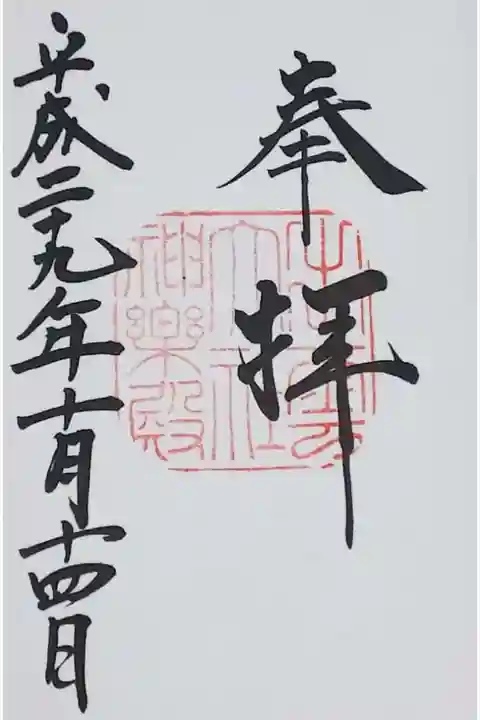 奉拝
出雲大社神楽殿
平成二十九年十月十四日